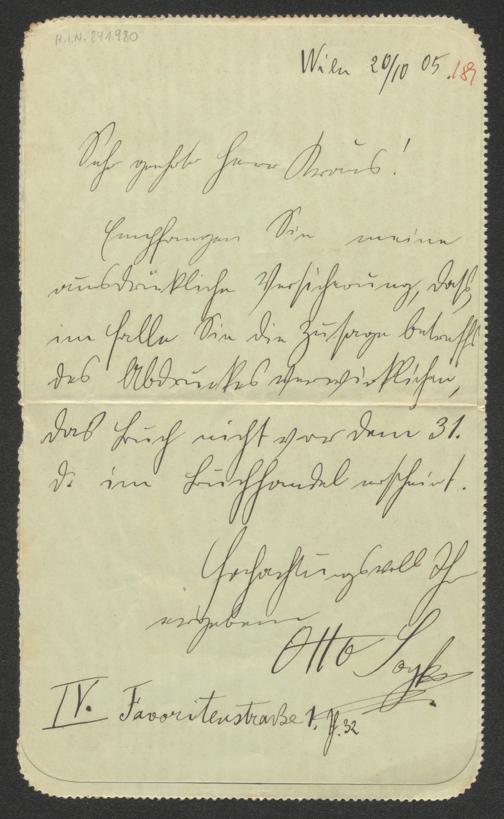 H.I.N. 241.980
Wien 20/10 05.
189
Sehr geehrter Herr Kraus!
Empfangen Sie meine
ausdrückliche Versicherung, daß,
im Falle Sie die Zusage betreffs
des Abdruckes verwirklichen,
das Buch nicht vor dem 31.
d. im Buchhandel erscheint.
Hochachtungsvoll Ihr
ergebener
Otto Soyka
IV. Favoritenstraße 1. 32